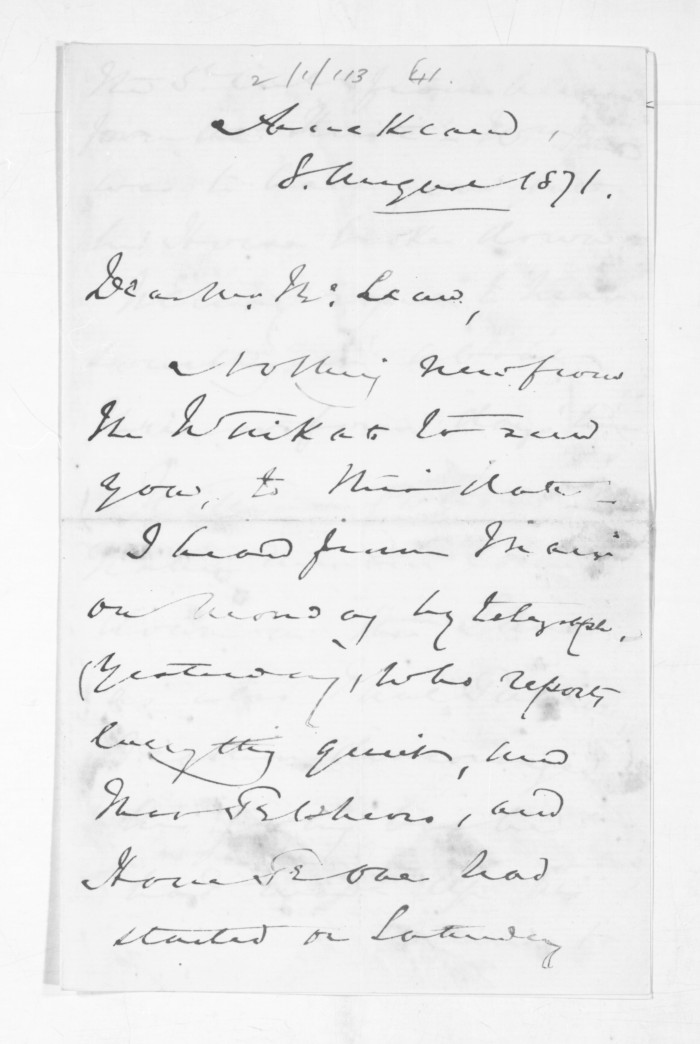 2/1/113 41.
Auckland,
8. August 1871.
Dear Mr. McLean,
Nothing new from
the Waikato to send
you, to this date –
I heard from Mair
on Monday by telegraph,
(yesterday), who reports
everything quiet, and
that and
Hone Te One had
started on Saturday